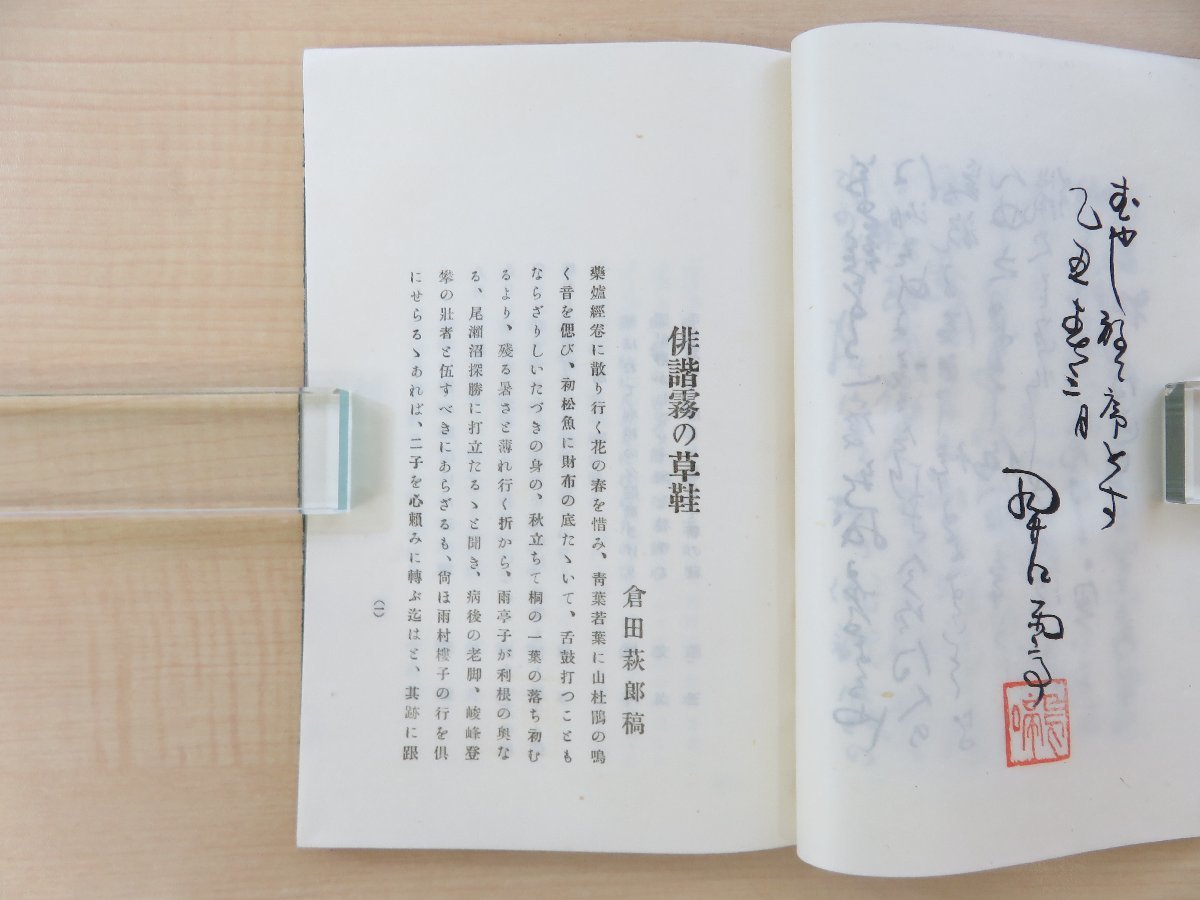 乙丑春三月
俳諧霧の草鞋
倉田萩郎稿
藥爐經卷に散り行く花の春を惜み、靑葉若葉に山杜鵑の鳴
く音を偲び、初松魚に財布の底たゝいて、舌鼓打つことも
ならざりしいたづきの身の、秋立ちて桐の一葉の落ち初む
るより、殘る暑さと薄れ行く折から、雨亭子が利根の奧な
る、尾瀨沼探勝に打立たるゝと聞き、病後の老脚、峻峰登
攀の壯者と伍すべきにあらざるも、尙ほ雨村樓子の行を俱
にせらるゝあれば、二子を心賴みに轉ぶ迄はと、其跡に跟
(一)